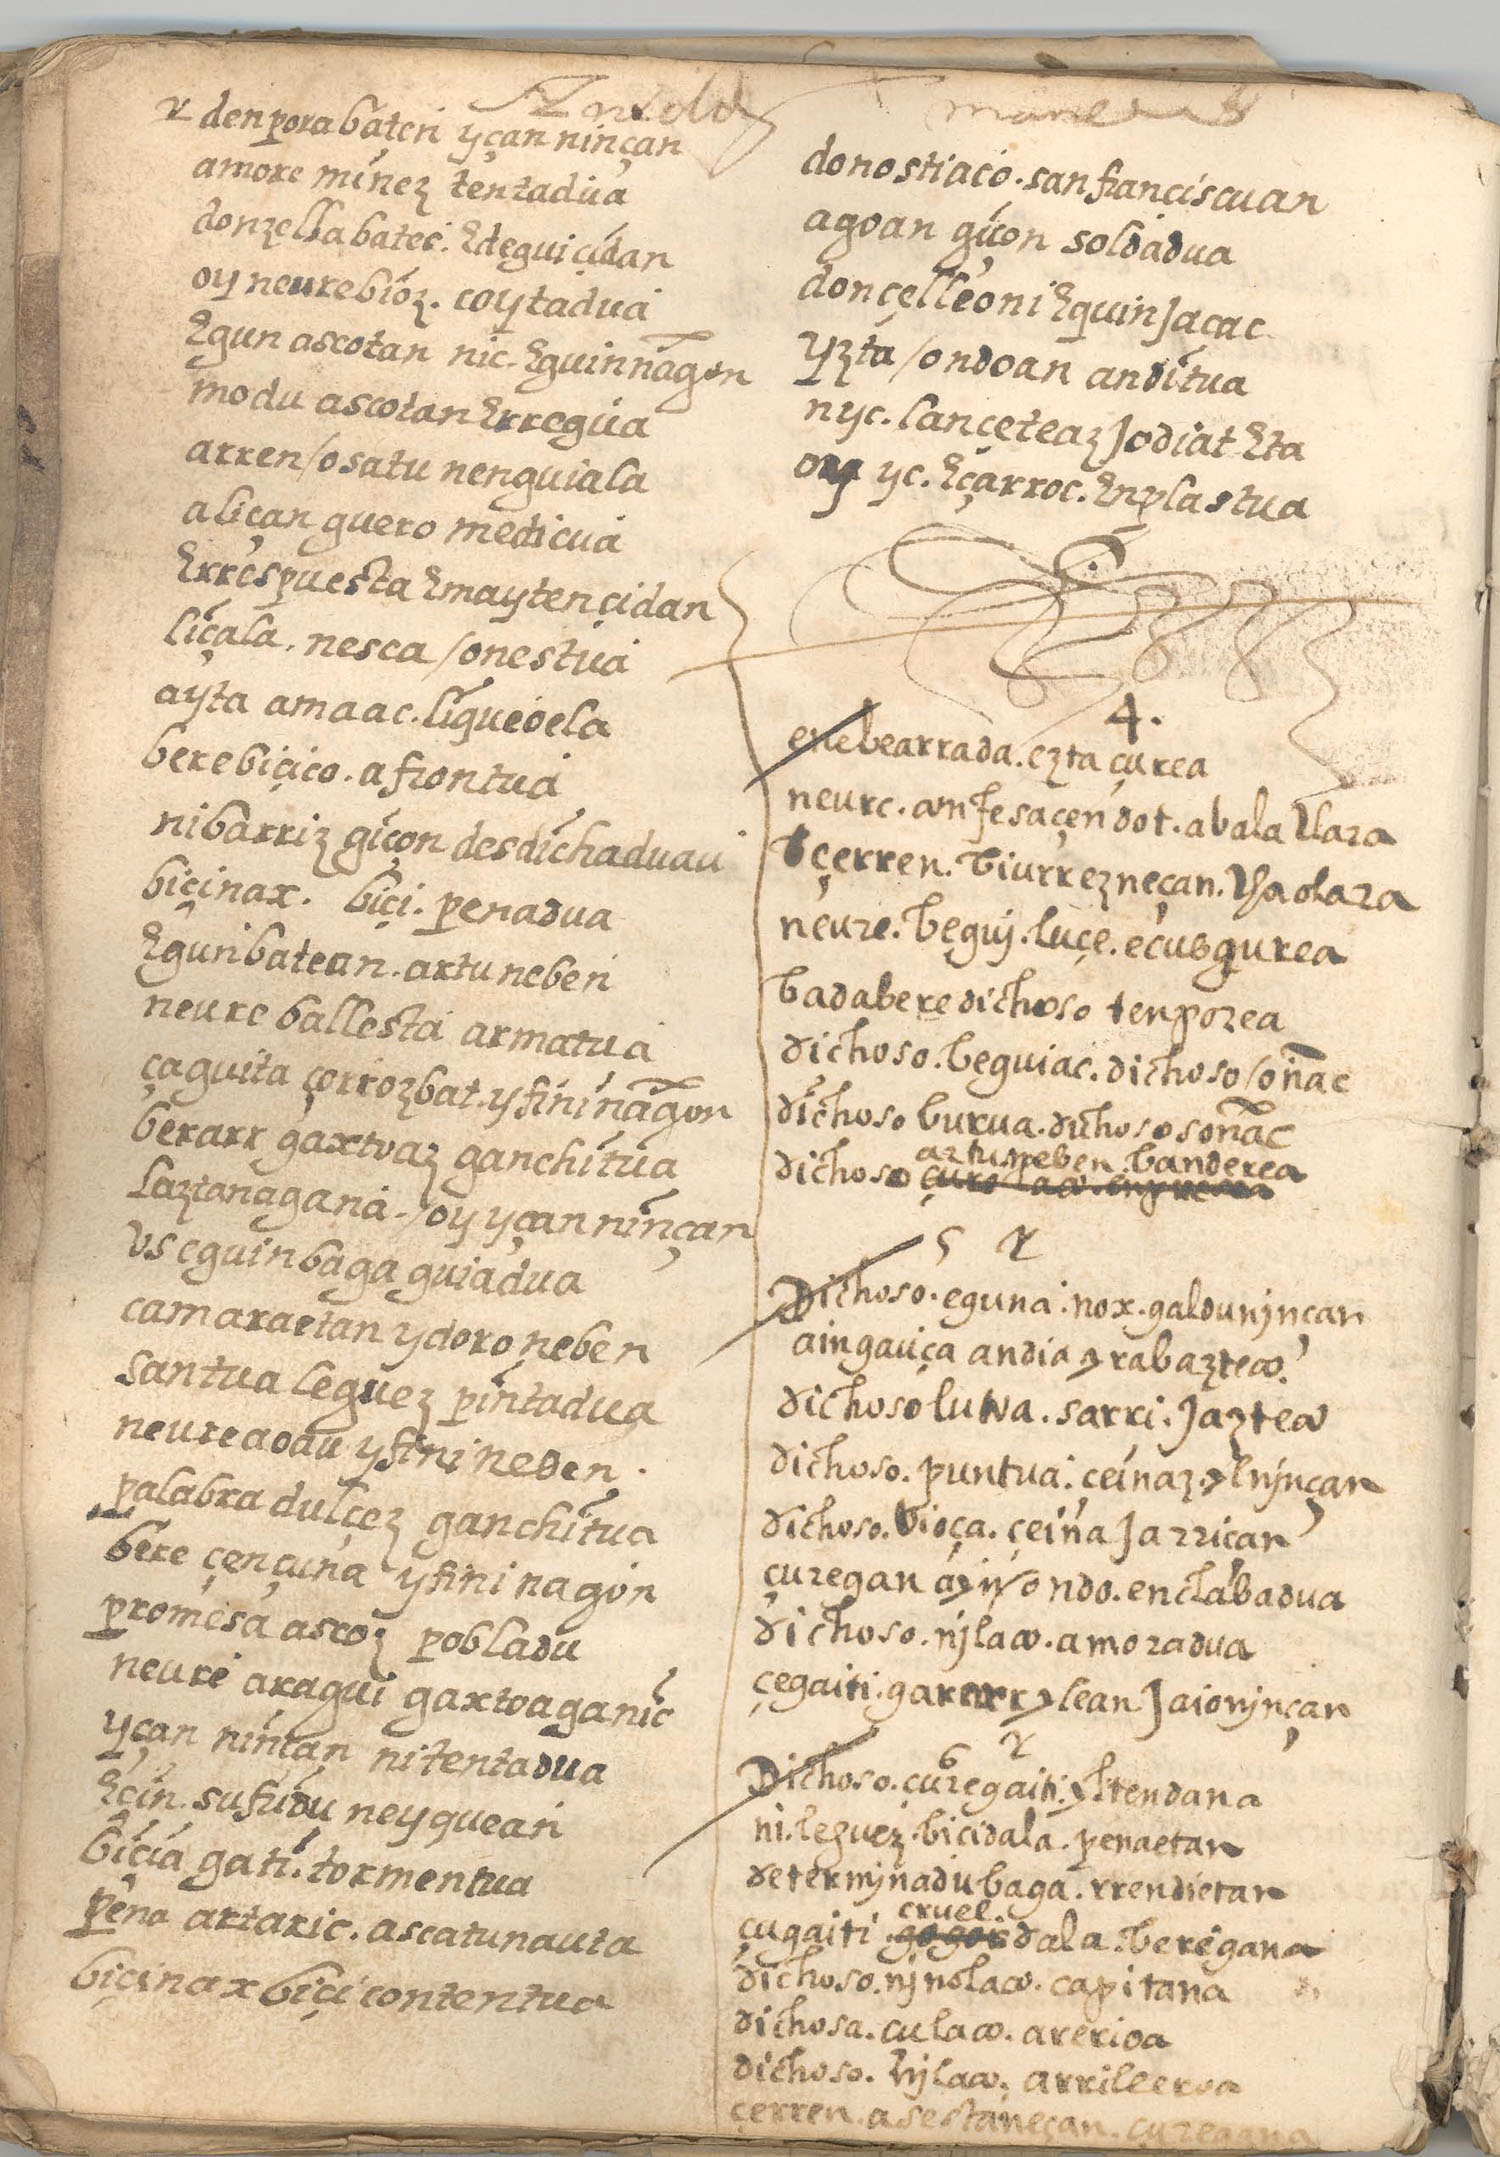 denpora bateri yçan ninçan
amore minez tentadua
donzella batec. Edegui çidan
oy neure bioz. coytadua
Egun ascotan nic. Eguin nagon
modu ascotan Erregua
arren /osatu nenguiala
aliçan guero medicua
Errespuesta Emayten çidan
liçala. nesca /onestua
ayta amaac. ligueoela
bere biçico. afrontua
ni barriz giçon desdichaduau
biçinax. biçi. penadua
Egun batean. artu neben
neure ballesta armatua
çaguita çorrozbat. yfini nagon
berarr gaxtoaz ganchitua
laztanagana. /oy yçan ninçan
vs eguinbaga guiadua
camaraetan ydoro neben
santua leguez pintadua
neure aoau yfini neben.
palabra dulçez ganchitua
bere çençuna yfini nagon
promesa ascoz pobladu
neure aragui gaxtoaganic
yçan nintan ni tentadua
Eçin. sufridu neyquean
biçia gati. tormentua
pena artaric. ascatunauta
biçinax biçi contentua
donostiaco. san franciscuan
agoan giçon soldadua
donçelleoni Equin Jacac
yzta /ondoan anditua
nyc. lançeteaz Jodiat Eta
oy yc. Eçarroc. Enplastua
4.
ene bearrada. ezta çurea
neure. confesaçen dot. abala
çerren. biurrezneçan.
neure. begui. luçe. ecusgurea
badabere dichoso tenporea
dichoso. beguiac. dichoso /onac
dichoso burua. dichoso sonac
artu neben. banderea
dichoso
5
Dichoso. eguna. nox. galdu ninçan
ain gauça andia yrabaztea.
dichoso lurra. sarri. Jaztea
dichoso. puntua. ceinaz. yl ninçan
dichoso. bioça. çeina Jarrican
çuregan ayn /ondo. enclabadua
dichoso. ni laco. amoradua
çegaiti. ylean Jaio ninçan
6
Dichoso. çuregaiti. yltendana
ni. leguez. bicidala. penaetan
determinadu baga. rrendietan
cruel.
çugaiti. gogor dala. beregana
dichoso. ni nolaco. capitana
dichosa. cu laco. arerioa
dichoso. ni laco. arrileeroa
çerren. asestaneçan. çuregana